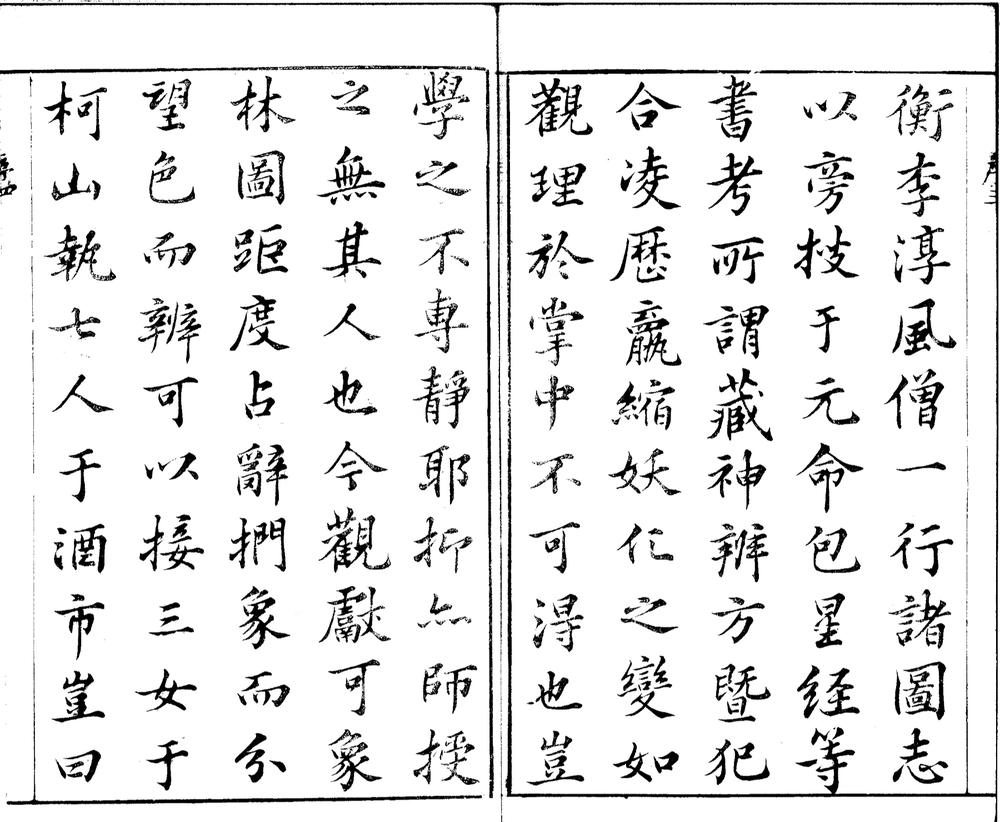 衡李淳風僧一行諸圖志
以旁搜于元命包星経等
書考所謂藏神辨方暨犯
合凌歷贏縮妖化之變如
觀理於掌中不可得也豈
學之不專靜耶抑亦師授
之無其人也今觀獻可象
林圖距度占辭捫象而分
望色而辨可以接三女于
柯山執七人于酒市豈曰